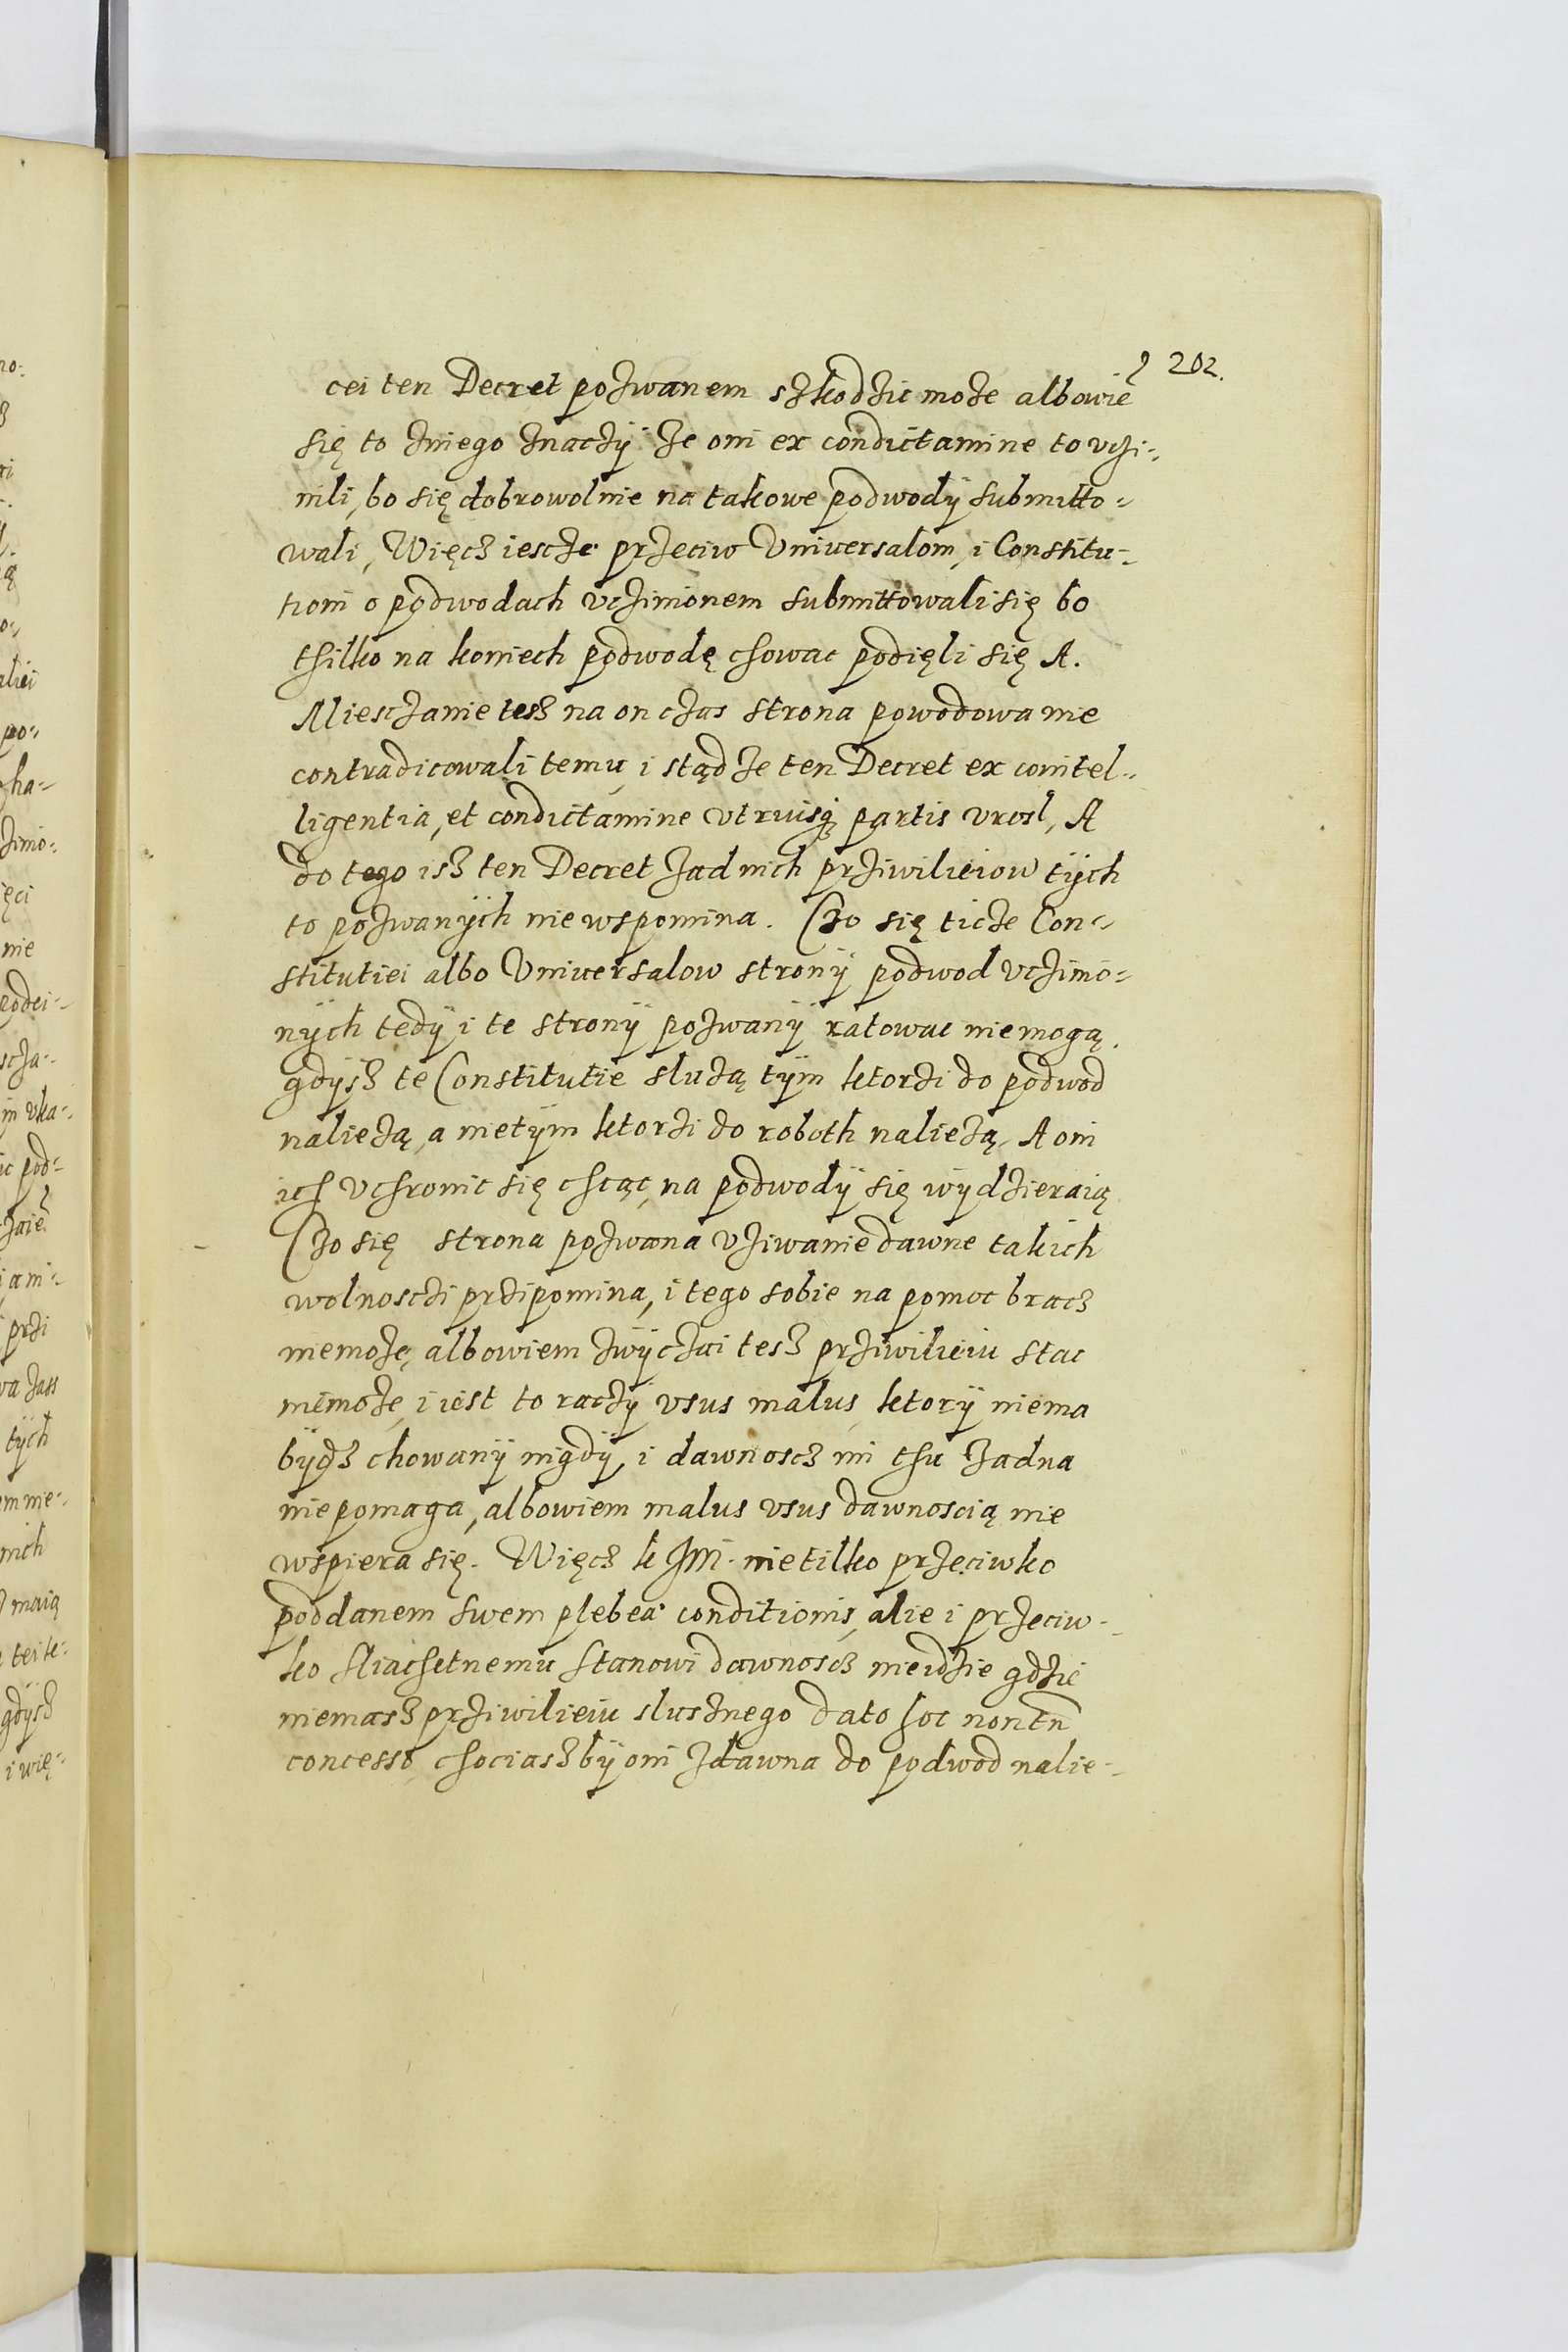 202.
cei ten Decret pozwanem szkodzic moze albowiẽ
się to zniego znaczÿ ze oni ex condictamine to vczi-
nili, bo się dobrowolnie na takowe podwodÿ submitto-
wali, Więcz iescze przeciw Vniversalom, i Constitu-
tiom o podwodach vczinionem submittowali się bo
thilko na koniech podwodę chowac podięli się A.
Miesczanie tesz na on czas strona powodowa nie
contradicowali temu, i stąd ze ten Decret ex conitel-
ligentia, et condictamine vtriusq partis vrosl, A
do tego isz ten Decret zadnich prziwilieiow tÿch
to pozwanÿch nie wspomina. Czo się ticze Con-
stitutiei albo Vniversalow stronÿ podwod vczinio-
nÿch tedÿ i te stronÿ pozwanÿ ratowac niemogą.
gdÿsz te Constitutie sluzą tÿm ktorzi do podwod
nalieżą, a nietÿm ktorzi do roboth nalieżą, A oni
ich vchronic się chcąc, na podwodÿ się wÿdzieraią
Czo się strona pozwana vziwanie dawne takich
wolnosczi przipomina, i tego sobie na pomoc bracz
niemoze, albowiem zwÿczai tesz prziwilieiu stac
niemoze, i iest to raczÿ vsus malus, ktorÿ niema
bÿdz chowanÿ nigdÿ, i dawnoscz im thu zadna
niepomaga, albowiem malus vsus dawnoscią nie
wspiera się. Więcz k JM. nie tilko przeciwko
poddanem swem plebeæ conditionis, alie i przeciw-
ko sliachetnemu stanowi dawnoscz nieidzie gdzie
niemasz prziwilieiu slusznego dato hoc non tñ
concesso, chociaszbÿ oni zdawna do podwod nalie-